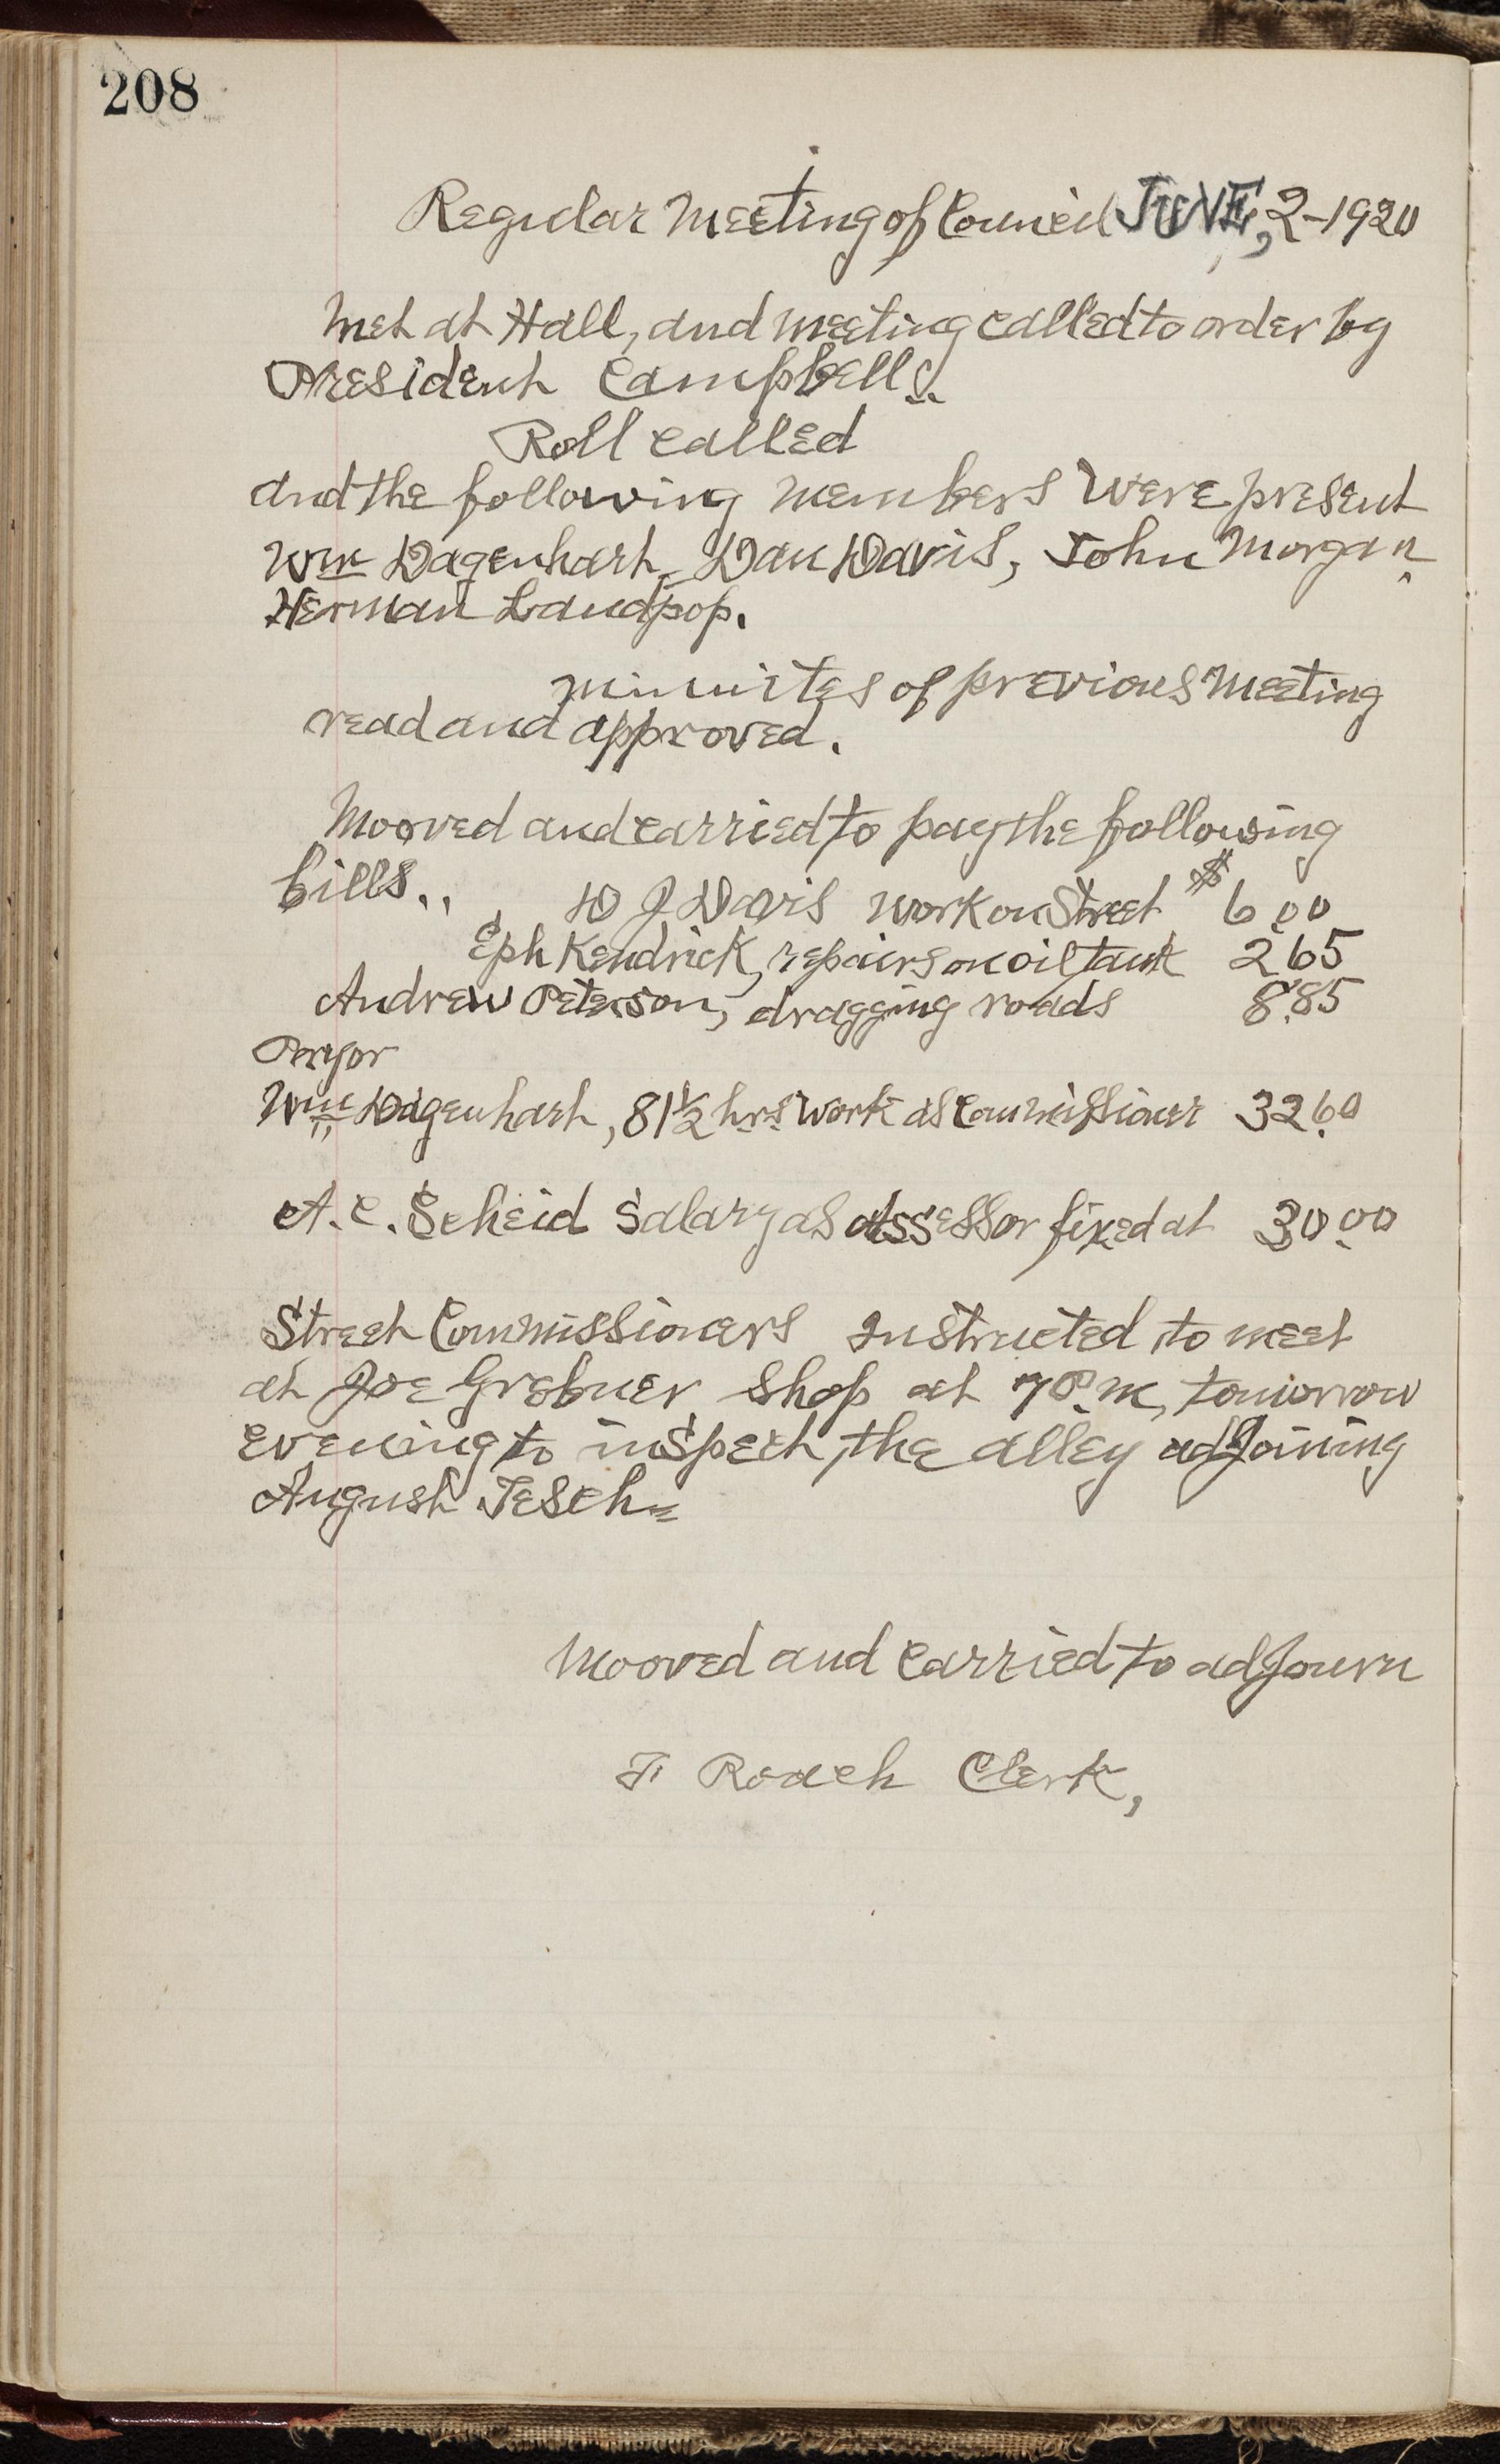 208
Regular Meeting of Council JUNE, 2-1920
Met at Hall, and meeting called to order by
President Campbell,
Roll called
and the following members were present
Wm Dagenhart, Dan Davis, John Morgan,
Herman Landpop.
minuites of previous meeting
read and approved.
Mooved and carried to pay the following
bills..  D J Davis work on Street $ 6.00
Eph Kendrick, repairs on oil tank 2 65
Andrew Peterson, dragging roads 8.85
Wm Dagenhart, 81½ hrs work as Commissioner 32.60
A. C. Scheid Salary as Assessor fixed at 30.00
Street Commissioners instructed to meet
at Joe Grebner Shop at 7 P.M, tomorrow
evening to inspect, the alley adJoining
August Tesch=
Mooved and Carried to adJourn
F Roach Clerk,